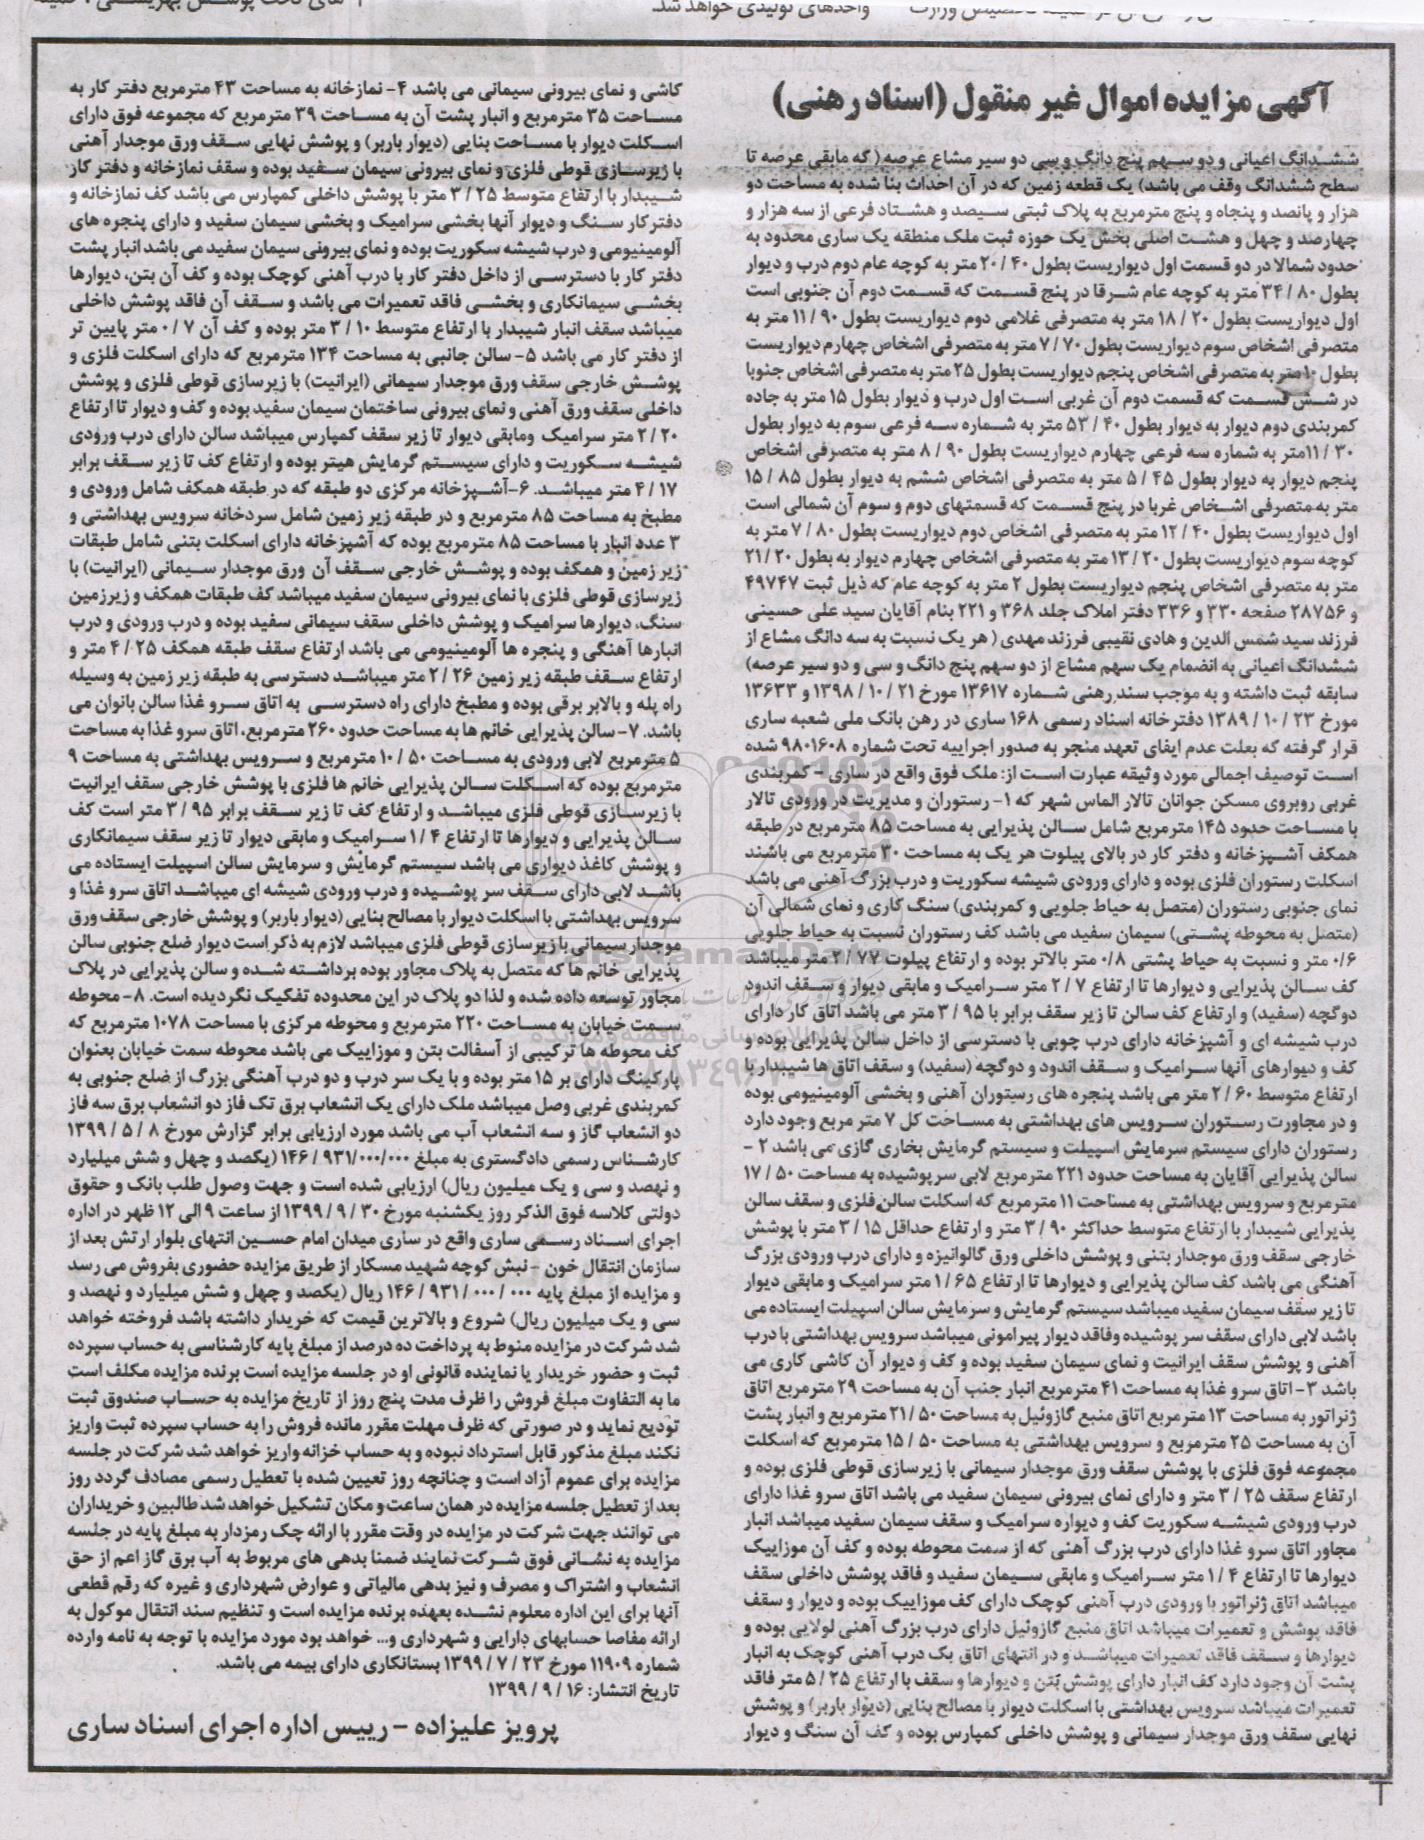 واحدهای تولیدی خواهد شد.
آگهی مزایده اموال غیر منقول (اسناد رهنی)
ششدانگ اعیانی و دو سهم پنج دانگ و سی دو سیر مشاع عرصه ( که مابقی عرصه تا
سطح ششدانگ وقف می باشد) یک قطعه زمین که در آن احداث بنا شده به مساحت دو
هزار و پانصد و پنجاه و پنج مترمربع به پلاک ثبتی سیصد و هشتاد فرعی از سه هزار و
چهارصد و چهل و هشت اصلی بخش یک حوزه ثبت ملک منطقه یک ساری محدود به
حدود شمالا در دو قسمت اول دیواریست بطول ۴۰ / ۲۰ متر به کوچه عام دوم درب و دیوار
بطول ۸۰ / ۳۴ متر به کوچه عام شرقا در پنج قسمت که قسمت دوم آن جنوبی است
اول دیواریست بطول ۲۰ / ۱۸ متر به متصرفی غلامی دوم دیواریست بطول ۹۰ / ۱۱ متر به
متصرفی اشخاص سوم دیواریست بطول ۷۰ / ۷ متر به متصرفی اشخاص چهارم دیواریست
بطول ۱۰متر به متصرفی اشخاص پنجم دیواریست بطول ۲۵ متر به متصرفی اشخاص جنوبا
در شش قسمت که قسمت دوم آن غربی است اول درب و دیوار بطول ۱۵ متر به جاده
کمربندی دوم دیوار به دیوار بطول ۴۰ / ۵۳ متر به شماره سه فرعی سوم به دیوار بطول
۳۰ / ۱۱متر به شماره سه فرعی چهارم دیواریست بطول ۹۰ / ۸ متر به متصرفی اشخاص
پنجم دیوار به دیوار بطول ۴۵ / ۵ متر به متصرفی اشخاص ششم به دیوار بطول ۸۵ / ۱۵
متر به متصرفی اشخاص غربا در پنج قسمت که قسمتهای دوم و سوم آن شمالی است
اول دیواریست بطول ۴۰ / ۱۲ متر به متصرفی اشخاص دوم دیواریست بطول ۸۰ / ۷ متر به
کوچه سوم دیواریست بطول ۲۰ / ۱۳ متر به متصرفی اشخاص چهارم دیوار به بطول ۲۰ / ۲۱
متر به متصرفی اشخاص پنجم دیواریست بطول ۲ متر به کوچه عام که ذیل ثبت ۴۹۷۴۷
و ۲۸۷۵۶ صفحه ۳۳۰ و ۳۳۶ دفتر املاک جلد ۳۶۸ و ۲۲۱ بنام آقایان سید علی حسینی
فرزند سید شمس الدین و هادی نقیبی فرزند مهدی ( هر یک نسبت به سه دانگ مشاع از
ششدانگ اعیانی به انضمام یک سهم مشاع از دو سهم پنج دانگ و سی و دو سیر عرصه)
سابقه ثبت داشته و به موجب سند رهنی شماره ۱۳۶۱۷ مورخ ۲۱ / ۱۰ / ۱۳۹۸ و ۱۳۶۳۳
مورخ ۲۳ / ۱۰ / ۱۳۸۹ دفترخانه اسناد رسمی ۱۶۸ ساری در رهن بانک ملی شعبه ساری
قرار گرفته که بعلت عدم ایفای تعهد منجر به صدور اجراییه تحت شماره ۹۸۰۱۶۰۸ شده
است توصیف اجمالی مورد وثیقه عبارت است از: ملک فوق واقع در ساری – کمربندی
غربی روبروی مسکن جوانان تالار الماس شهر که ۱- رستوران و مدیریت در ورودی تالار
با مساحت حدود ۱۴۵ مترمربع شامل سالن پذیرایی به مساحت ۸۵ مترمربع در طبقه
همکف آشپزخانه و دفتر کار در بالای پیلوت هر یک به مساحت ۳۰ مترمربع می باشند
اسکلت رستوران فلزی بوده و دارای ورودی شیشه سکوریت و درب بزرگ آهنی می باشد
نمای جنوبی رستوران (متصل به حیاط جلویی و کمربندی) سنگ کاری و نمای شمالی آن
(متصل به محوطه پشتی) سیمان سفید می باشد کف رستوران نسبت به حیاط جلویی
۰/۶ متر و نسبت به حیاط پشتی ۰/۸ متر بالاتر بوده و ارتفاع پیلوت ۷۷ / ۲ متر میباشد
کف سالن پذیرایی و دیوارها تا ارتفاع ۷ / ۲ متر سرامیک و مابقی دیوار و سقف اندود
دوگچه (سفید) و ارتفاع کف سالن تا زیر سقف برابر با ۹۵ / ۳ متر می باشد اتاق کار دارای
درب شیشه ای و آشپزخانه دارای درب چوبی با دسترسی از داخل سالن پذیرایی بوده و
کف و دیوارهای آنها سرامیک و سقف اندود و دوگچه (سفید) و سقف اتاق ها شیبدار با
ارتفاع متوسط ۶۰ / ۲ متر می باشد پنجره های رستوران آهنی و بخشی آلومینیومی بوده
و در مجاورت رستوران سرویس های بهداشتی به مساحت کل ۷ متر مربع وجود دارد
رستوران دارای سیستم سرمایش اسپیلت و سیستم گرمایش بخاری گازی می باشد ۲ –
سالن پذیرایی آقایان به مساحت حدود ۲۲۱ مترمربع لابی سرپوشیده به مساحت ۵۰ / ۱۷
مترمربع و سرویس بهداشتی به مساحت ۱۱ مترمربع که اسکلت سالن فلزی و سقف سالن
پذیرایی شیبدار با ارتفاع متوسط حداکثر ۹۰ / ۳ متر و ارتفاع حداقل ۱۵ / ۳ متر با پوشش
خارجی سقف ورق موجدار بتنی و پوشش داخلی ورق گالوانیزه و دارای درب ورودی بزرگ
آهنگی می باشد کف سالن پذیرایی و دیوارها تا ارتفاع ۶۵ / ۱ متر سرامیک و مابقی دیوار
تا زیر سقف سیمان سفید میباشد سیستم گرمایش و سرمایش سالن اسپیلت ایستاده می
باشد لابی دارای سقف سر پوشیده وفاقد دیوار پیرامونی میباشد سرویس بهداشتی با درب
آهنی و پوشش سقف ایرانیت و نمای سیمان سفید بوده و کف و دیوار آن کاشی کاری می
باشد ۳- اتاق سرو غذا به مساحت ۴۱ مترمربع انبار جنب آن به مساحت ۲۹ مترمربع اتاق
ژنراتور به مساحت ۱۳ مترمربع اتاق منبع گازوئیل به مساحت ۵۰ / ۲۱ مترمربع و انبار پشت
آن به مساحت ۲۵ مترمربع و سرویس بهداشتی به مساحت ۵۰ / ۱۵ مترمربع که اسکلت
مجموعه فوق فلزی با پوشش سقف ورق موجدار سیمانی با زیرسازی قوطی فلزی بوده و
ارتفاع سقف ۲۵ / ۳ متر و دارای نمای بیرونی سیمان سفید می باشد اتاق سرو غذا دارای
درب ورودی شیشه سکوریت کف و دیواره سرامیک و سقف سیمان سفید میباشد انبار
مجاور اتاق سرو غذا دارای درب بزرگ آهنی که از سمت محوطه بوده و کف آن موزاییک
دیوارها تا ارتفاع ۱/۴ متر سرامیک و مابقی سیمان سفید و فاقد پوشش داخلی سقف
میباشد اتاق ژنراتور با ورودی درب آهنی کوچک دارای کف موزاییک بوده و دیوار و سقف
فاقد پوشش و تعمیرات میباشد اتاق منبع گازوئیل دارای درب بزرگ آهنی لولایی بوده و
دیوارها و سقف فاقد تعمیرات میباشد و در انتهای اتاق یک درب آهنی کوچک به انبار
پشت آن وجود دارد کف انبار دارای پوشش بتن و دیوارها و سقف با ارتفاع ۲۵ / ۵ متر فاقد
تعمیرات میباشد سرویس بهداشتی با اسکلت دیوار با مصالح بنایی (دیوار باربر) و پوشش
نهایی سقف ورق موجدار سیمانی و پوشش داخلی کمپارس بوده و کف آن سنگ و دیوار
کاشی و نمای بیرونی سیمانی می باشد ۴- نمازخانه به مساحت ۴۳ مترمربع دفتر کار به
مساحت ۳۵ مترمربع و انبار پشت آن به مساحت ۳۹ مترمربع که مجموعه فوق دارای
اسکلت دیوار با مساحت بنایی (دیوار باربر) و پوشش نهایی سقف ورق موجدار آهنی
با زیرسازی قوطی فلزی و نمای بیرونی سیمان سفید بوده و سقف نمازخانه و دفتر کار
شیبدار با ارتفاع متوسط ۲۵ / ۳ متر با پوشش داخلی کمپارس می باشد کف نمازخانه و
دفترکار سنگ و دیوار آنها بخشی سرامیک و بخشی سیمان سفید و دارای پنجره های
آلومینیومی و درب شیشه سکوریت بوده و نمای بیرونی سیمان سفید می باشد انبار پشت
دفتر کار با دسترسی از داخل دفتر کار با درب آهنی کوچک بوده و کف آن بتن، دیوارها
بخشی سیمانکاری و بخشی فاقد تعمیرات می باشد و سقف آن فاقد پوشش داخلی
میباشد سقف انبار شیبدار با ارتفاع متوسط ۱۰ / ۳ متر بوده و کف آن ۷ / ۰ متر پایین تر
از دفتر کار می باشد ۵- سالن جانبی به مساحت ۱۳۴ مترمربع که دارای اسکلت فلزی و
پوشش خارجی سقف ورق موجدار سیمانی (ایرانیت) با زیرسازی قوطی فلزی و پوشش
داخلی سقف ورق آهنی و نمای بیرونی ساختمان سیمان سفید بوده و کف و دیوار تا ارتفاع
۲/۲۰ متر سرامیک ومابقی دیوار تا زیر سقف کمپارس میباشد سالن دارای درب ورودی
شیشه سکوریت و دارای سیستم گرمایش هیتر بوده و ارتفاع کف تا زیر سقف برابر
۴/۱۷ متر میباشد. ۶-آشپزخانه مرکزی دو طبقه که در طبقه همکف شامل ورودی و
مطبخ به مساحت ۸۵ مترمربع و در طبقه زیر زمین شامل سردخانه سرویس بهداشتی و
۳ عدد انبار با مساحت ۸۵ مترمربع بوده که آشپزخانه دارای اسکلت بتنی شامل طبقات
زیر زمین و همکف بوده و پوشش خارجی سقف آن ورق موجدار سیمانی (ایرانیت) با
زیرسازی قوطی فلزی با نمای بیرونی سیمان سفید میباشد کف طبقات همکف و زیرزمین
سنگ، دیوارها سرامیک و پوشش داخلی سقف سیمانی سفید بوده و درب ورودی و درب
انبارها آهنگی و پنجره ها آلومینیومی می باشد ارتفاع سقف طبقه همکف ۲۵ / ۴ متر و
ارتفاع سقف طبقه زیر زمین ۲۶ / ۲ متر میباشد دسترسی به طبقه زیر زمین به وسیله
راه پله و بالابر برقی بوده و مطبخ دارای راه دسترسی به اتاق سرو غذا سالن بانوان می
باشد. ۷- سالن پذیرایی خانم ها به مساحت حدود ۲۶۰ مترمربع، اتاق سرو غذا به مساحت
۵ مترمربع لابی ورودی به مساحت ۵۰ / ۱۰ مترمربع و سرویس بهداشتی به مساحت ۹
مترمربع بوده که اسکلت سالن پذیرایی خانم ها فلزی با پوشش خارجی سقف ایرانیت
با زیرسازی قوطی فلزی میباشد و ارتفاع کف تا زیر سقف برابر ۹۵ / ۳ متر است کف
سالن پذیرایی و دیوارها تا ارتفاع ۱/۴ سرامیک و مابقی دیوار تا زیر سقف سیمانکاری
و پوشش کاغذ دیواری می باشد سیستم گرمایش و سرمایش سالن اسپیلت ایستاده می
باشد لابی دارای سقف سر پوشیده و درب ورودی شیشه ای میباشد اتاق سرو غذا و
سرویس بهداشتی با اسکلت دیوار با مصالح بنایی (دیوار باربر) و پوشش خارجی سقف ورق
موجدار سیمانی با زیرسازی قوطی فلزی میباشد لازم به ذکر است دیوار ضلع جنوبی سالن
پذیرایی خانم ها که متصل به پلاک مجاور بوده برداشته شده و سالن پذیرایی در پلاک
مجاور توسعه داده شده و لذا دو پلاک در این محدوده تفکیک نگردیده است. ۸- محوطه
سمت خیابان به مساحت ۲۲۰ مترمربع و محوطه مرکزی با مساحت ۱۰۷۸ مترمربع که
کف محوطه ها ترکیبی از آسفالت بتن و موزاییک می باشد محوطه سمت خیابان بعنوان
پارکینگ دارای بر ۱۵ متر بوده و با یک سر درب و دو درب آهنگی بزرگ از ضلع جنوبی به
کمربندی غربی وصل میباشد ملک دارای یک انشعاب برق تک فاز دو انشعاب برق سه فاز
دو انشعاب گاز و سه انشعاب آب می باشد مورد ارزیابی برابر گزارش مورخ ۸ / ۵ / ۱۳۹۹
کارشناس رسمی دادگستری به مبلغ ۱۴۶/۹۳۱/۰۰۰/۰۰۰ (یکصد و چهل و شش میلیارد
و نهصد و سی و یک میلیون ریال) ارزیابی شده است و جهت وصول طلب بانک و حقوق
دولتی کلاسه فوق الذکر روز یکشنبه مورخ ۳۰ / ۹ / ۱۳۹۹ از ساعت ۹ الی ۱۲ ظهر در اداره
اجرای اسناد رسمی ساری واقع در ساری میدان امام حسین انتهای بلوار ارتش بعد از
سازمان انتقال خون – نبش کوچه شهید مسکار از طریق مزایده حضوری بفروش می رسد
و مزایده از مبلغ پایه ۰۰۰ / ۰۰۰ / ۹۳۱ / ۱۴۶ ریال (یکصد و چهل و شش میلیارد و نهصد و
سی و یک میلیون ریال) شروع و بالاترین قیمت که خریدار داشته باشد فروخته خواهد
شد شرکت در مزایده منوط به پرداخت ده درصد از مبلغ پایه کارشناسی به حساب سپرده
ثبت و حضور خریدار یا نماینده قانونی او در جلسه مزایده است برنده مزایده مکلف است
ما به التفاوت مبلغ فروش را ظرف مدت پنج روز از تاریخ مزایده به حساب صندوق ثبت
تودیع نماید و در صورتی که ظرف مهلت مقرر مانده فروش را به حساب سپرده ثبت واریز
نکند مبلغ مذکور قابل استرداد نبوده و به حساب خزانه واریز خواهد شد شرکت در جلسه
مزایده برای عموم آزاد است و چنانچه روز تعیین شده با تعطیل رسمی مصادف گردد روز
بعد از تعطیل جلسه مزایده در همان ساعت و مکان تشکیل خواهد شد طالبین و خریداران
می توانند جهت شرکت در مزایده در وقت مقرر با ارائه چک رمزدار به مبلغ پایه در جلسه
مزایده به نشانی فوق شرکت نمایند ضمنا بدهی های مربوط به آب برق گاز اعم از حق
انشعاب و اشتراک و مصرف و نیز بدهی مالیاتی و عوارض شهرداری و غیره که رقم قطعی
آنها برای این اداره معلوم نشده بعهده برنده مزایده است و تنظیم سند انتقال موکول به
ارائه مفاصا حسابهای دارایی و شهرداری و... خواهد بود مورد مزایده با توجه به نامه وارده
شماره ۱۱۹۰۹ مورخ ۲۳ / ۷ / ۱۳۹۹ بستانکاری دارای بیمه می باشد.
تاریخ انتشار: ۱۶ / ۹ / ۱۳۹۹
پرویز علیزاده – رییس اداره اجرای اسناد ساری